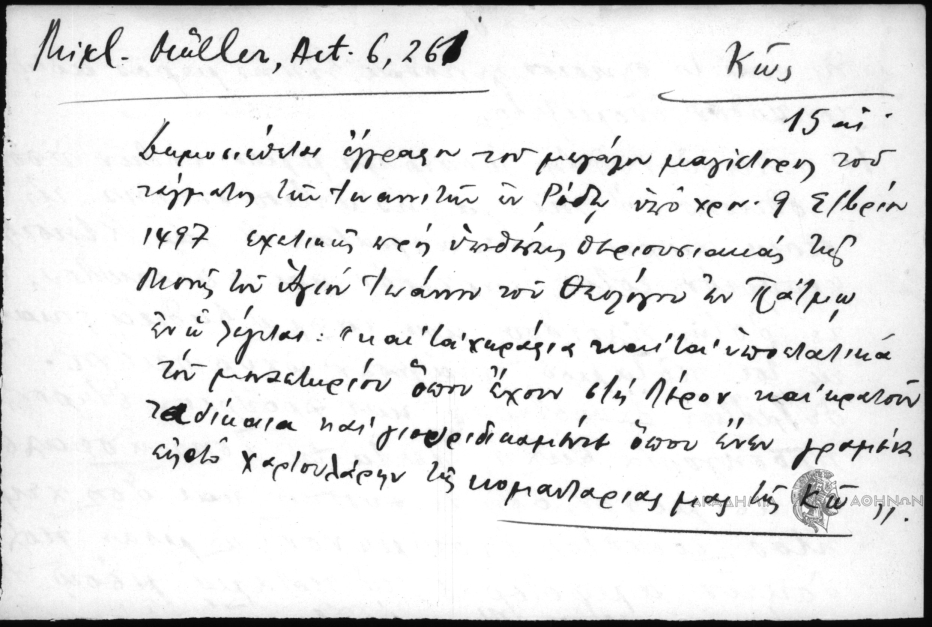 Mikl. Müller, Act. 6, 261
Κῶς
15 αἰ.
Δημοσιεύεται ἔγγραφον τοῦ μεγάλου μαγίστορος τοῦ
τάγματος τῶν Ἰωαννιτῶν ἐν Ρόδῳ ὑπὸ χρον. 9 7/βρίου
1497 σχετικῶς πρὸς ὑποθέσεις περιουσιακάς τῆς
Μονῆς τοῦ Ἁγίου Ἰωάννου τοῦ Θεολόγου ἐν Πάτμῳ
ἐν ᾧ λέγεται: "καὶ τὰ χωράφια καὶ τὰ ὑποστατικά
τοῦ μοναστηρίου ὅπου ἔχουν στὴ Λέρον καὶ κρατοῦν
τα δίκαια καὶ γιουριδικαμέντε ὅπου ἔνεν γραμένα
εἰς τὸ χαρτουλάρην τῆς κομανταρίας μας τῆς Κῶ".
ΑΚΑΔΗΜΙΑ ΑΘΗΝΩΝ